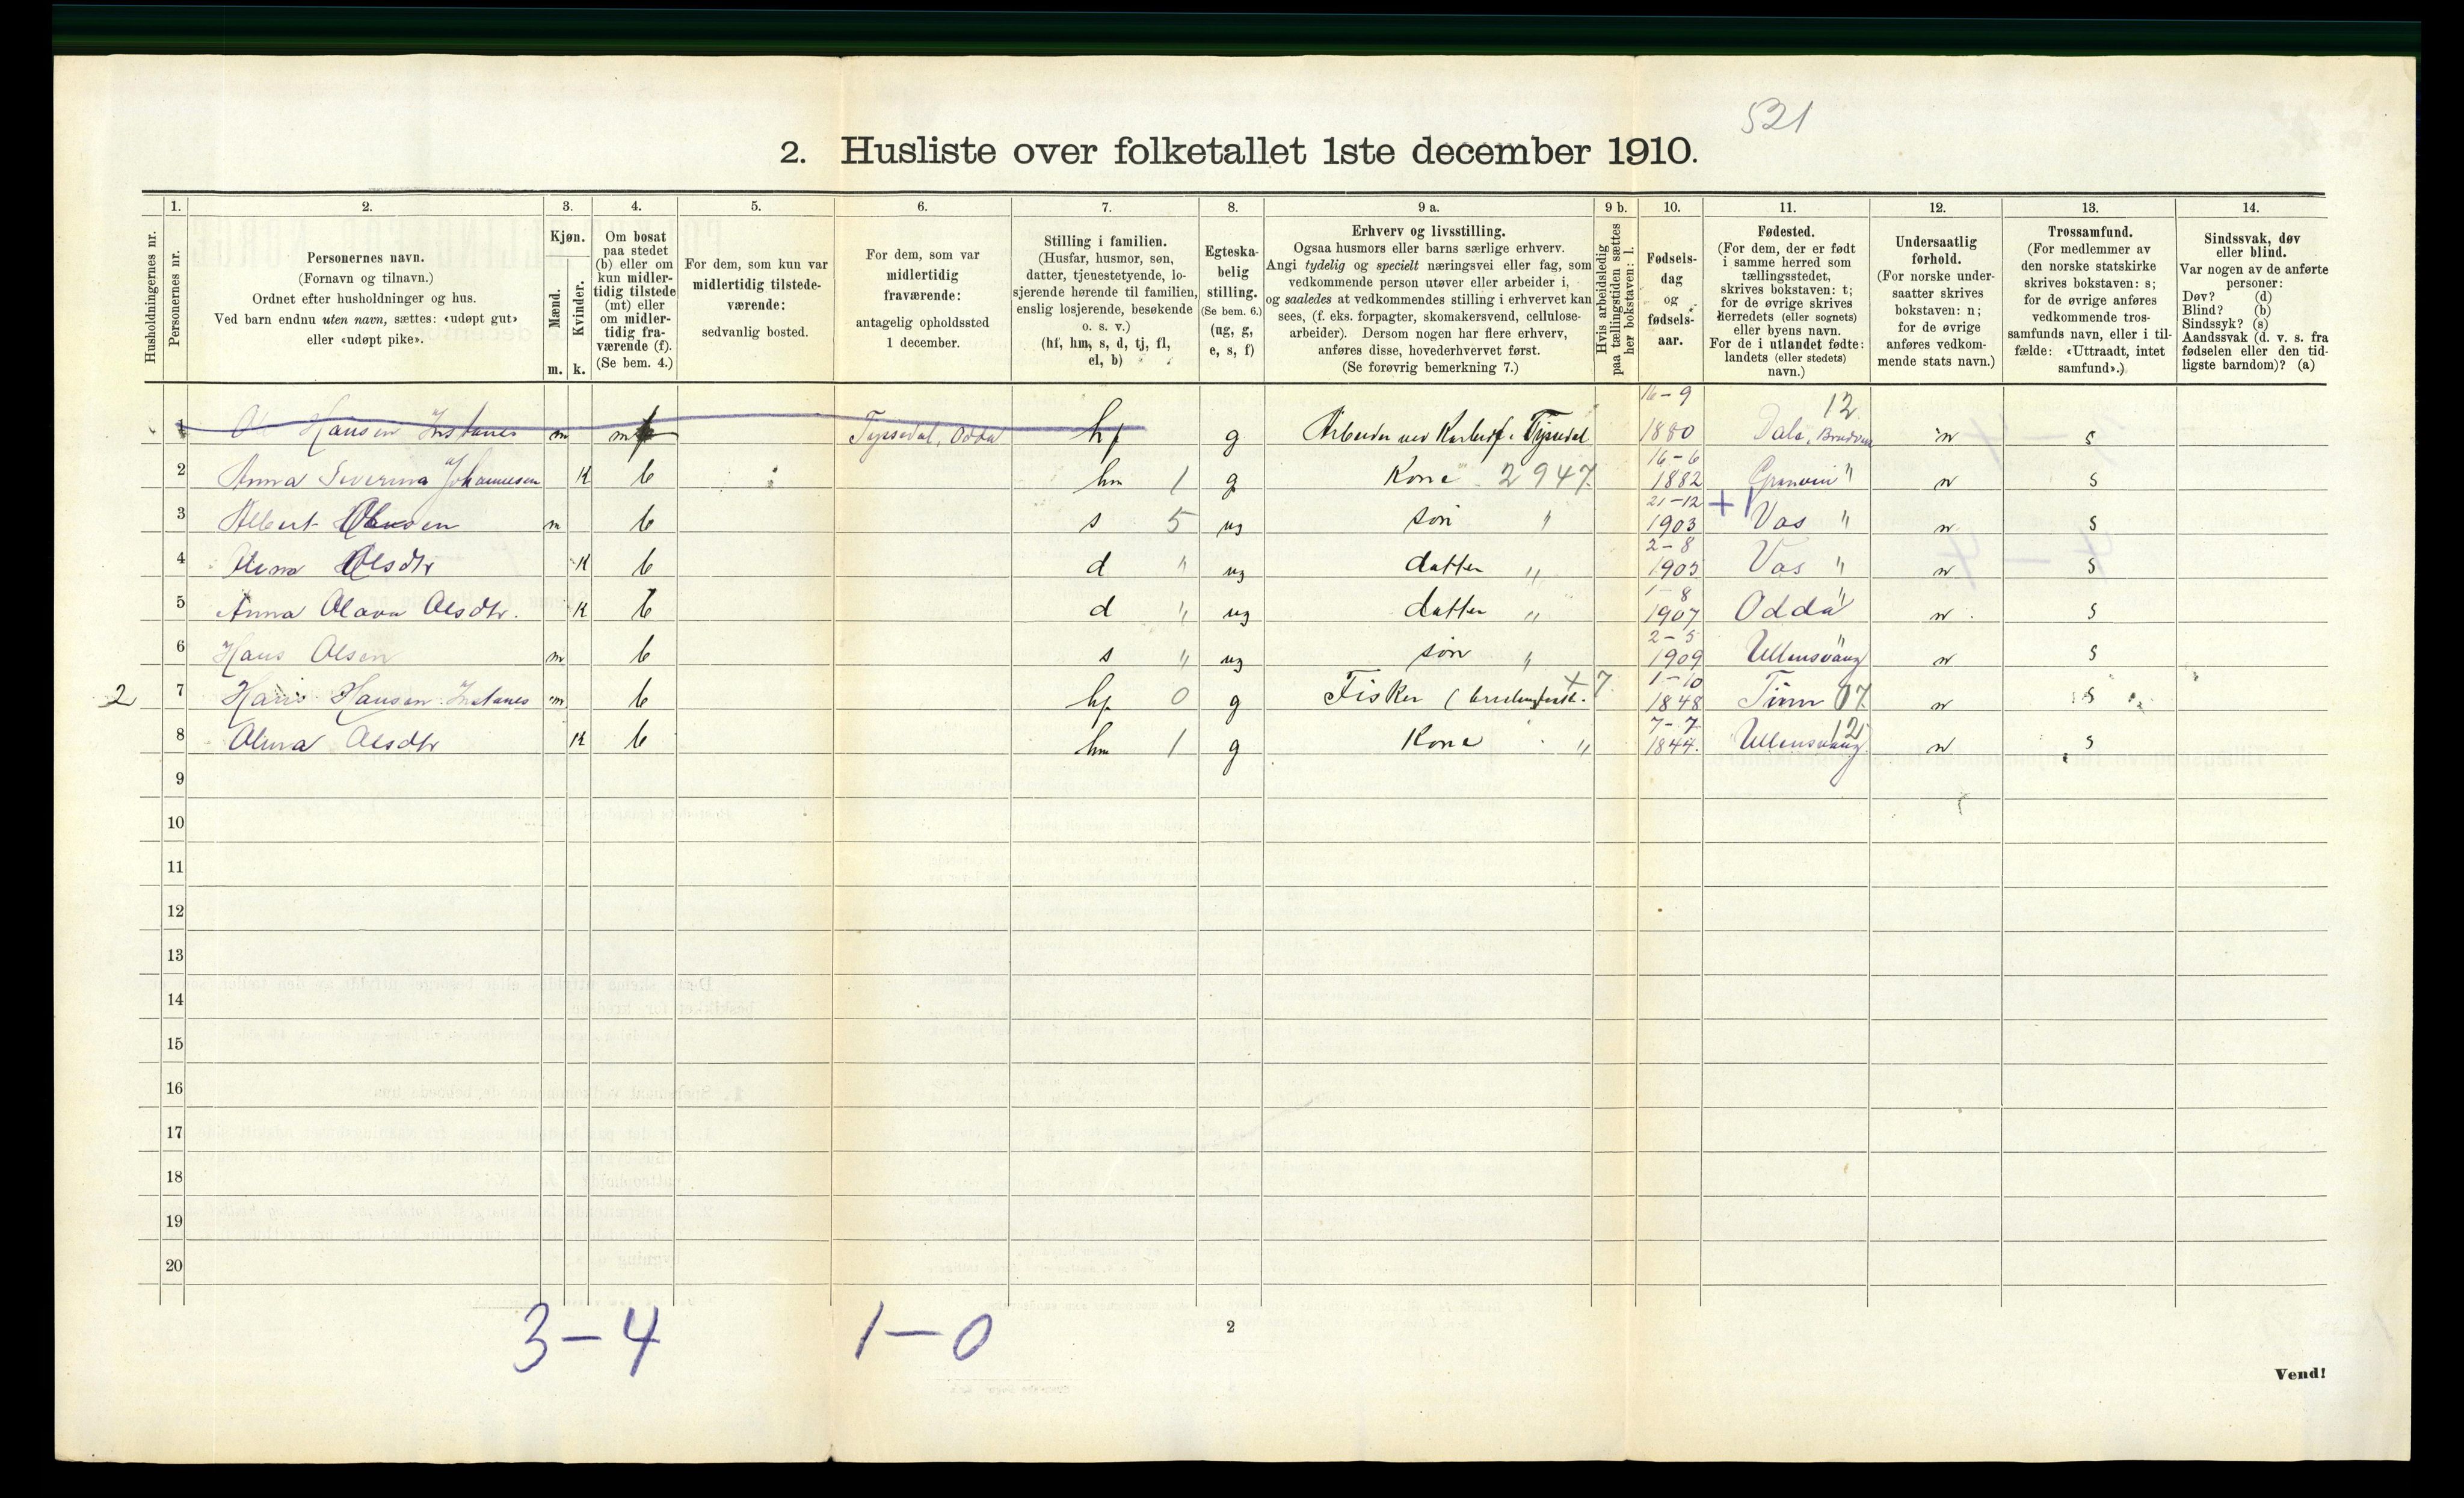 521
2. Husliste over folketallet 1ste december 1910.
Husholdningernes nr.
1. Personernes nr.
2. Personernes navn.
(Fornavn og tilnavn.)
Ordnet efter husholdninger og hus.
Ved barn endnu uten navn, sættes: «udøpt gut»
eller «udøpt pike».
3. Kjøn.
Mænd. m.
Kvinder. k.
4. Om bosat
paa stedet
(b) eller om
kun midler-
tidig tilstede
(mt) eller
om midler-
tidig fra-
værende (f).
(Se bem. 4.)
5. For dem, som kun var
midlertidig tilstede-
værende:
sedvanlig bosted.
6. For dem, som var
midlertidig
fraværende:
antagelig opholdssted
1 december.
7. Stilling i familien.
(Husfar, husmor, søn,
datter, tjenestetyende, lo-
sjerende hørende til familien,
enslig losjerende, besøkende
o. s. v.)
(hf, hm, s, d, tj, fl,
el, b)
8. Egteska-
belig
stilling.
(Se bem. 6.)
(ug, g,
e, s, f)
9 a. Erhverv og livsstilling.
Ogsaa husmors eller barns særlige erhverv.
Angi tydelig og specielt næringsvei eller fag, som
vedkommende person utøver eller arbeider i,
og saaledes at vedkommendes stilling i erhvervet kan
sees, (f. eks. forpagter, skomakersvend, cellulose-
arbeider). Dersom nogen har flere erhverv,
anføres disse, hovederhvervet først.
(Se forøvrig bemerkning 7.)
9 b. Hvis arbeidsledig
paa tællingstiden sættes
her bokstaven: l.
10. Fødsels-
dag
og
fødsels-
aar.
11. Fødested.
(For dem, der er født
i samme herred som
tællingsstedet,
skrives bokstaven: t;
for de øvrige skrives
herredets (eller sognets)
eller byens navn.
For de i utlandet fødte:
landets (eller stedets)
navn.)
12. Undersaatlig
forhold.
(For norske under-
saatter skrives
bokstaven: n;
for de øvrige
anføres vedkom-
mende stats navn.)
13. Trossamfund.
(For medlemmer av
den norske statskirke
skrives bokstaven: s;
for de øvrige anføres
vedkommende tros-
samfunds navn, eller i til-
fælde: «Uttraadt, intet
samfund».)
14. Sindssvak, døv
eller blind.
Var nogen av de anførte
personer:
Døv? (d)
Blind? (b)
Sindssyk? (s)
Aandssvak (d. v. s. fra
fødselen eller den tid-
ligste barndom)? (a)
1 Hansen Instanes m Tyssedal, Odda hf g Arbeider ved Tyssedal 16-9 1880 Dale 12 n s
2 Anna Severina Johannesen K b hm 1 g Kone 2947 16-6 1882 Granvin " n s
3 Albert Olsen m b s 5 ug søn " 21-12 1903 + 1 Vos " n s
4 Olsdtr K b d " ug datter " 2-8 1905 Vos " n s
5 Anna Olava Olsdtr. K b d " ug datter " 1-8 1907 Odda " n s
6 Hans Olsen m b s " ug søn " 2-5 1909 Ullensvang " n s
2 7 Hans Hansen Instanes m b hf 0 g Fisker + 7. 1-10 1848 Tinn 07 n s
8 Olina Olsdtr K b hm 1 g Kone " 7-7 1844. Ullensvang 12 n s
9
10
11
12
13
14
15
16
17
18
19
20
3-4 1-0
2
Vend!